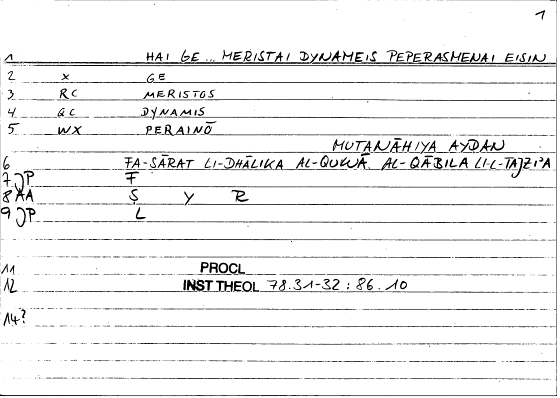 1
1 HAI GE ... MERISTAI DYNAMEIS PEPERASMENAI EISIN
2 x GE
3 RC MERISTOS
4 GC DYNAMIS
5 WX PERAINŌ
MUTANĀHIYA AYḌAN
6 FA-ṢĀRAT LI-DHĀLIKA AL-QUWĀ AL-QĀBILA LI-L-TAJZI'A
7 JP F
8 AA Ṣ Y R
9 JP L
11 PROCL
12 INST THEOL 78.31-32 : 86.10
14?